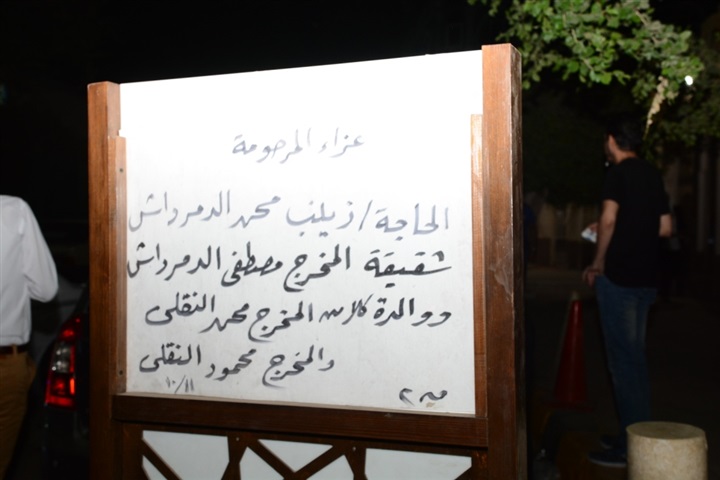 عزاء المرحومة
الحاجة / زينب محمد الدمرداش
شقيقة المخرج مصطفى الدمرداش
ووالدة كلا من المخرج محمد النقلى
والمخرج محمود النقلى
١٠/١١